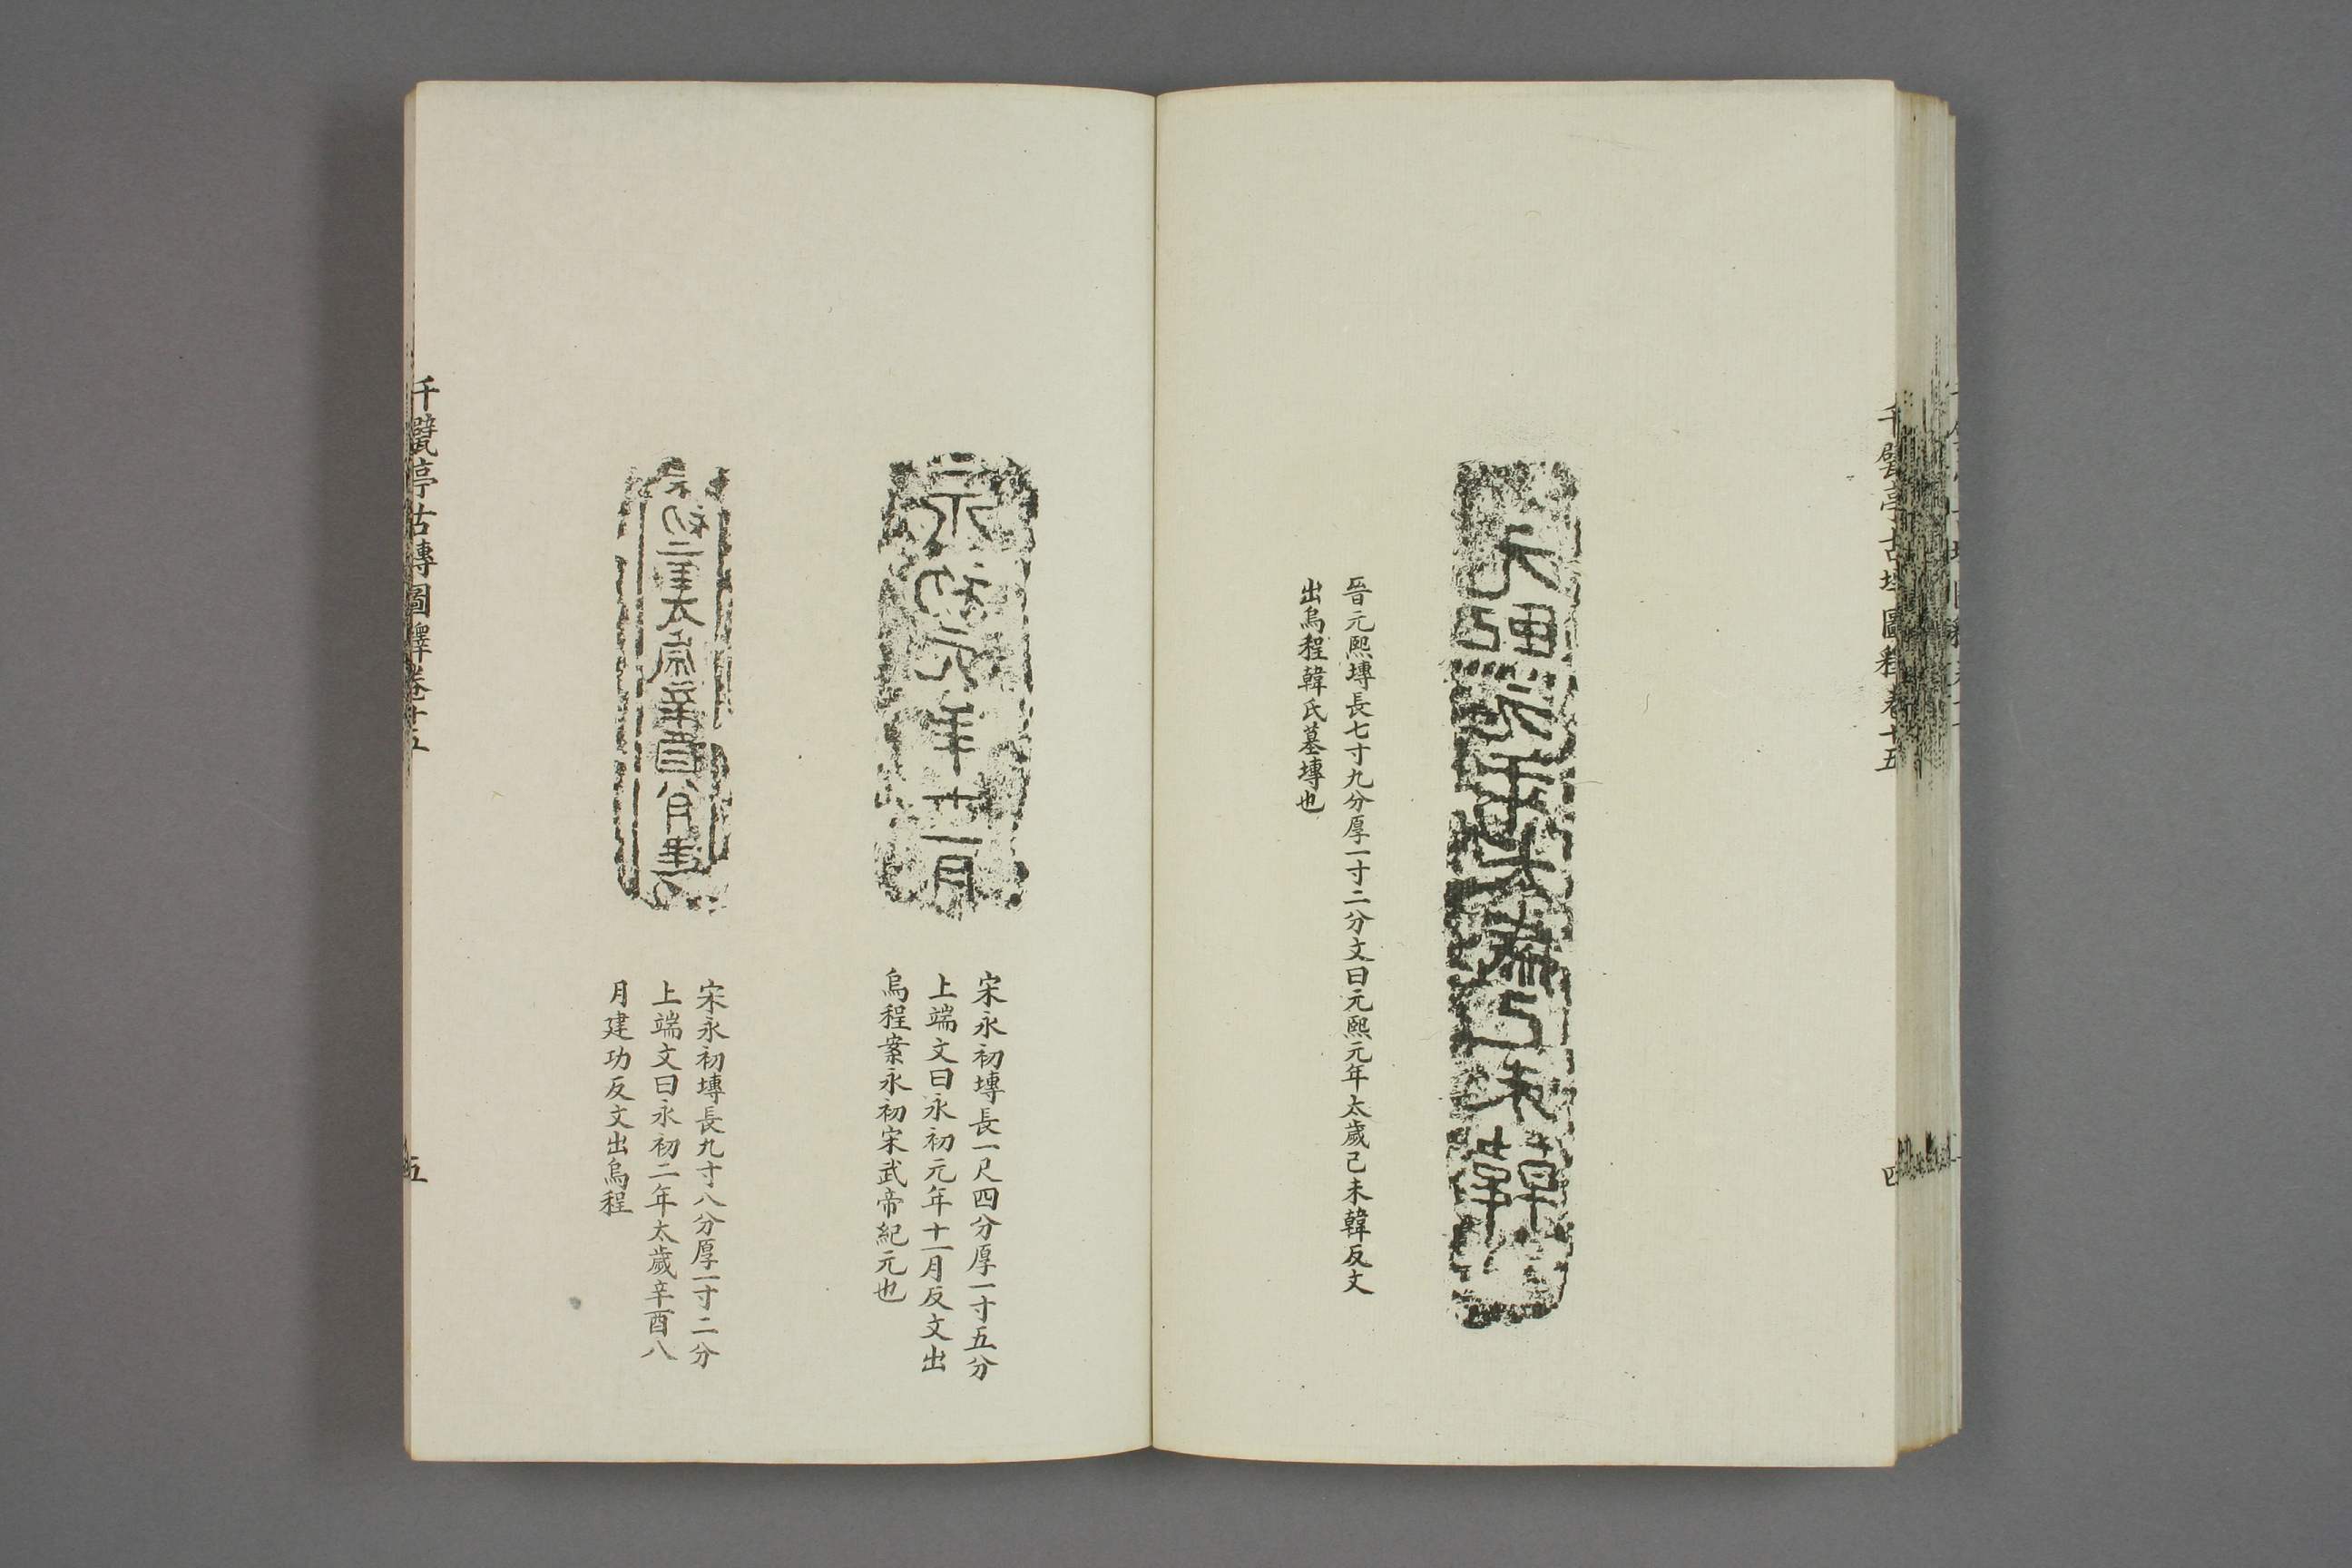 千甓亭古塼圖釋卷十五
四
晉元熙塼長七寸九分厚一寸二分文曰元熙元年太歲己未韓反文
出烏程韓氏墓塼也
宋永初塼長一尺四分厚一寸五分
上端文曰永初元年十一月反文出
烏程案永初宋武帝紀元也
永初元年十一月
宋永初塼長九寸八分厚一寸二分
上端文曰永初二年太歲辛酉八
月建功反文出烏程
千甓亭古塼圖釋卷十五
五